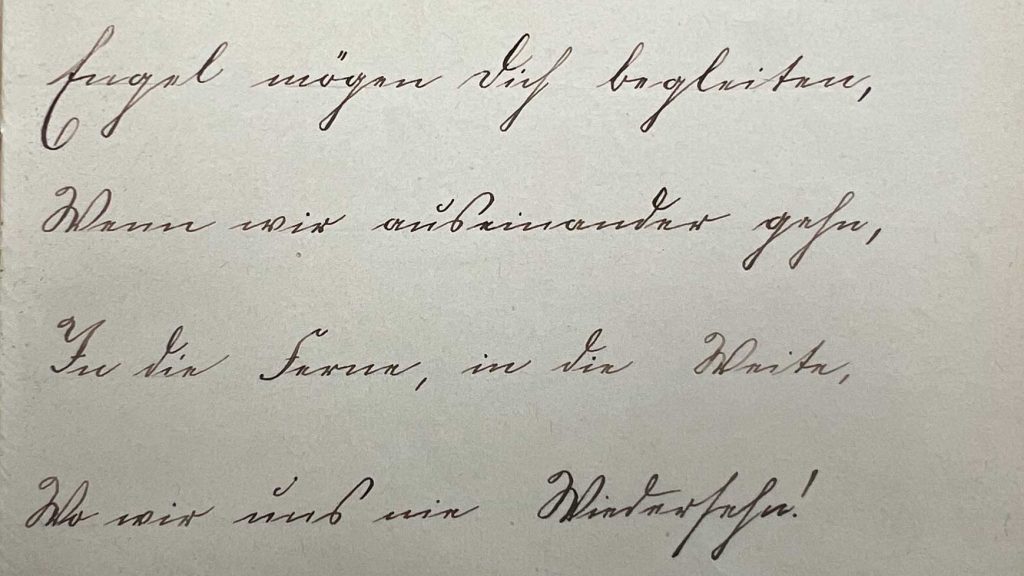 Engel mögen Dich begleiten,
Wenn wir auseinander gehn,
In die Ferne, in die Weite,
Wo wir uns nie Wiedersehn!